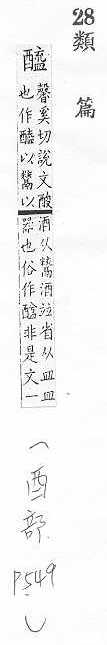 28
類篇
醯
馨奚切說文酸
也作醯以鬻以
酒从鬻酒並省从皿皿
器也俗作非是文一
(酉部 P.549)